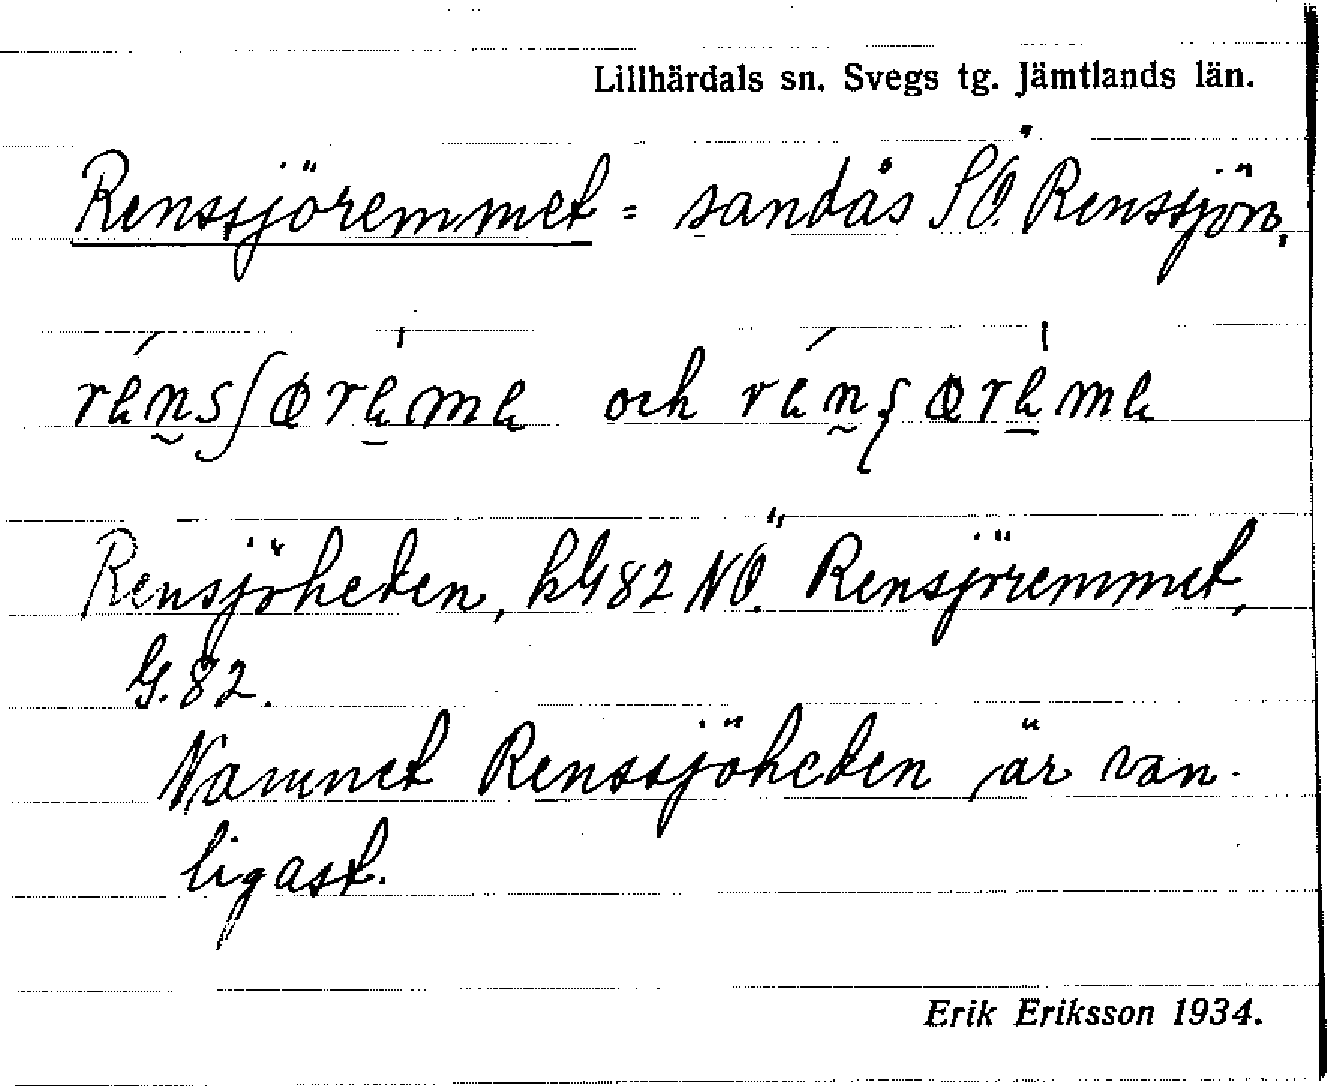 Lillhärdals sn. Svegs tg. Jämtlands län.
Renssjöremmet = sandås SÖ. Renssjön.
och
Rensjöheden, kG82 NÖ. Rensjöremmet,
G. 82.
Namnet Renssjöheden är van-
ligast.
Erik Eriksson 1934.